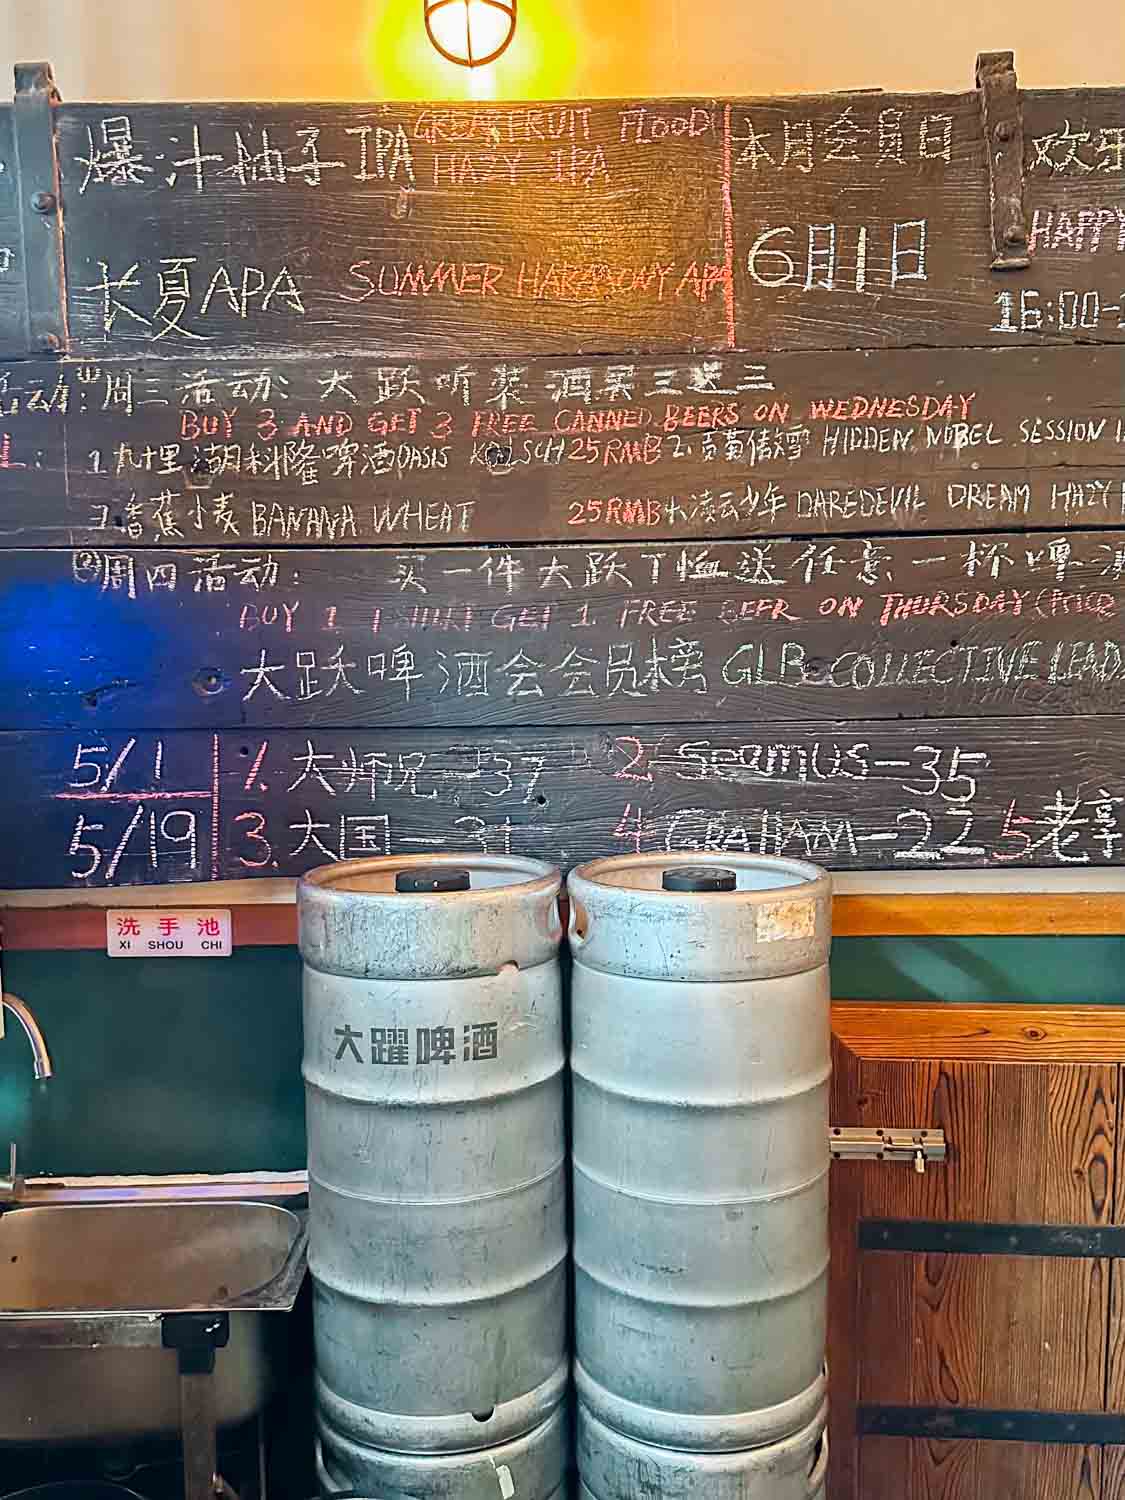 爆汁柚子IPA GREAPEFRUIT FLOOD HAZY IPA
长夏APA SUMMER HARMONY APA
本月会员日
6月1日
欢乐
HAPPY
16:00-
活动: 周三活动: 大跃听装酒买三送三
BUY 3 AND GET 3 FREE CANNED BEERS ON WEDNESDAY
1.九十里湖科隆啤酒OASIS KOLSCH 25RMB 2. HIDDEN NOBEL SESSION
3.香蕉小麦 BANANA WHEAT 25RMB 凌云少年 DAREDEVIL DREAM HAZY
周四活动: 买一件大跃T恤送任意一杯啤酒
BUY 1 T SHIRT GET 1 FREE BEER ON THURSDAY
大跃啤酒会会员榜 GLB COLLECTIVE LEAD
5/1
5/19
1. 大师兄-37 2. Seamus-35
3. 大国-31 4 GRAHAM-22 5 老享
洗手池
XI SHOU CHI
大躍啤酒